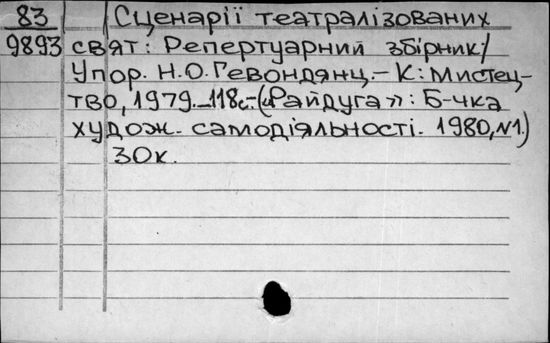 83 Сценарії театралізованих
9893 свят: Репертуарний збірник/
Упор. Н.О.Гевондянц.– К: Мистец-
тво, 1979.–118с.–(«Райдуга»: Б-чка
худож. самодіяльності. 1980, №1.)
30к.